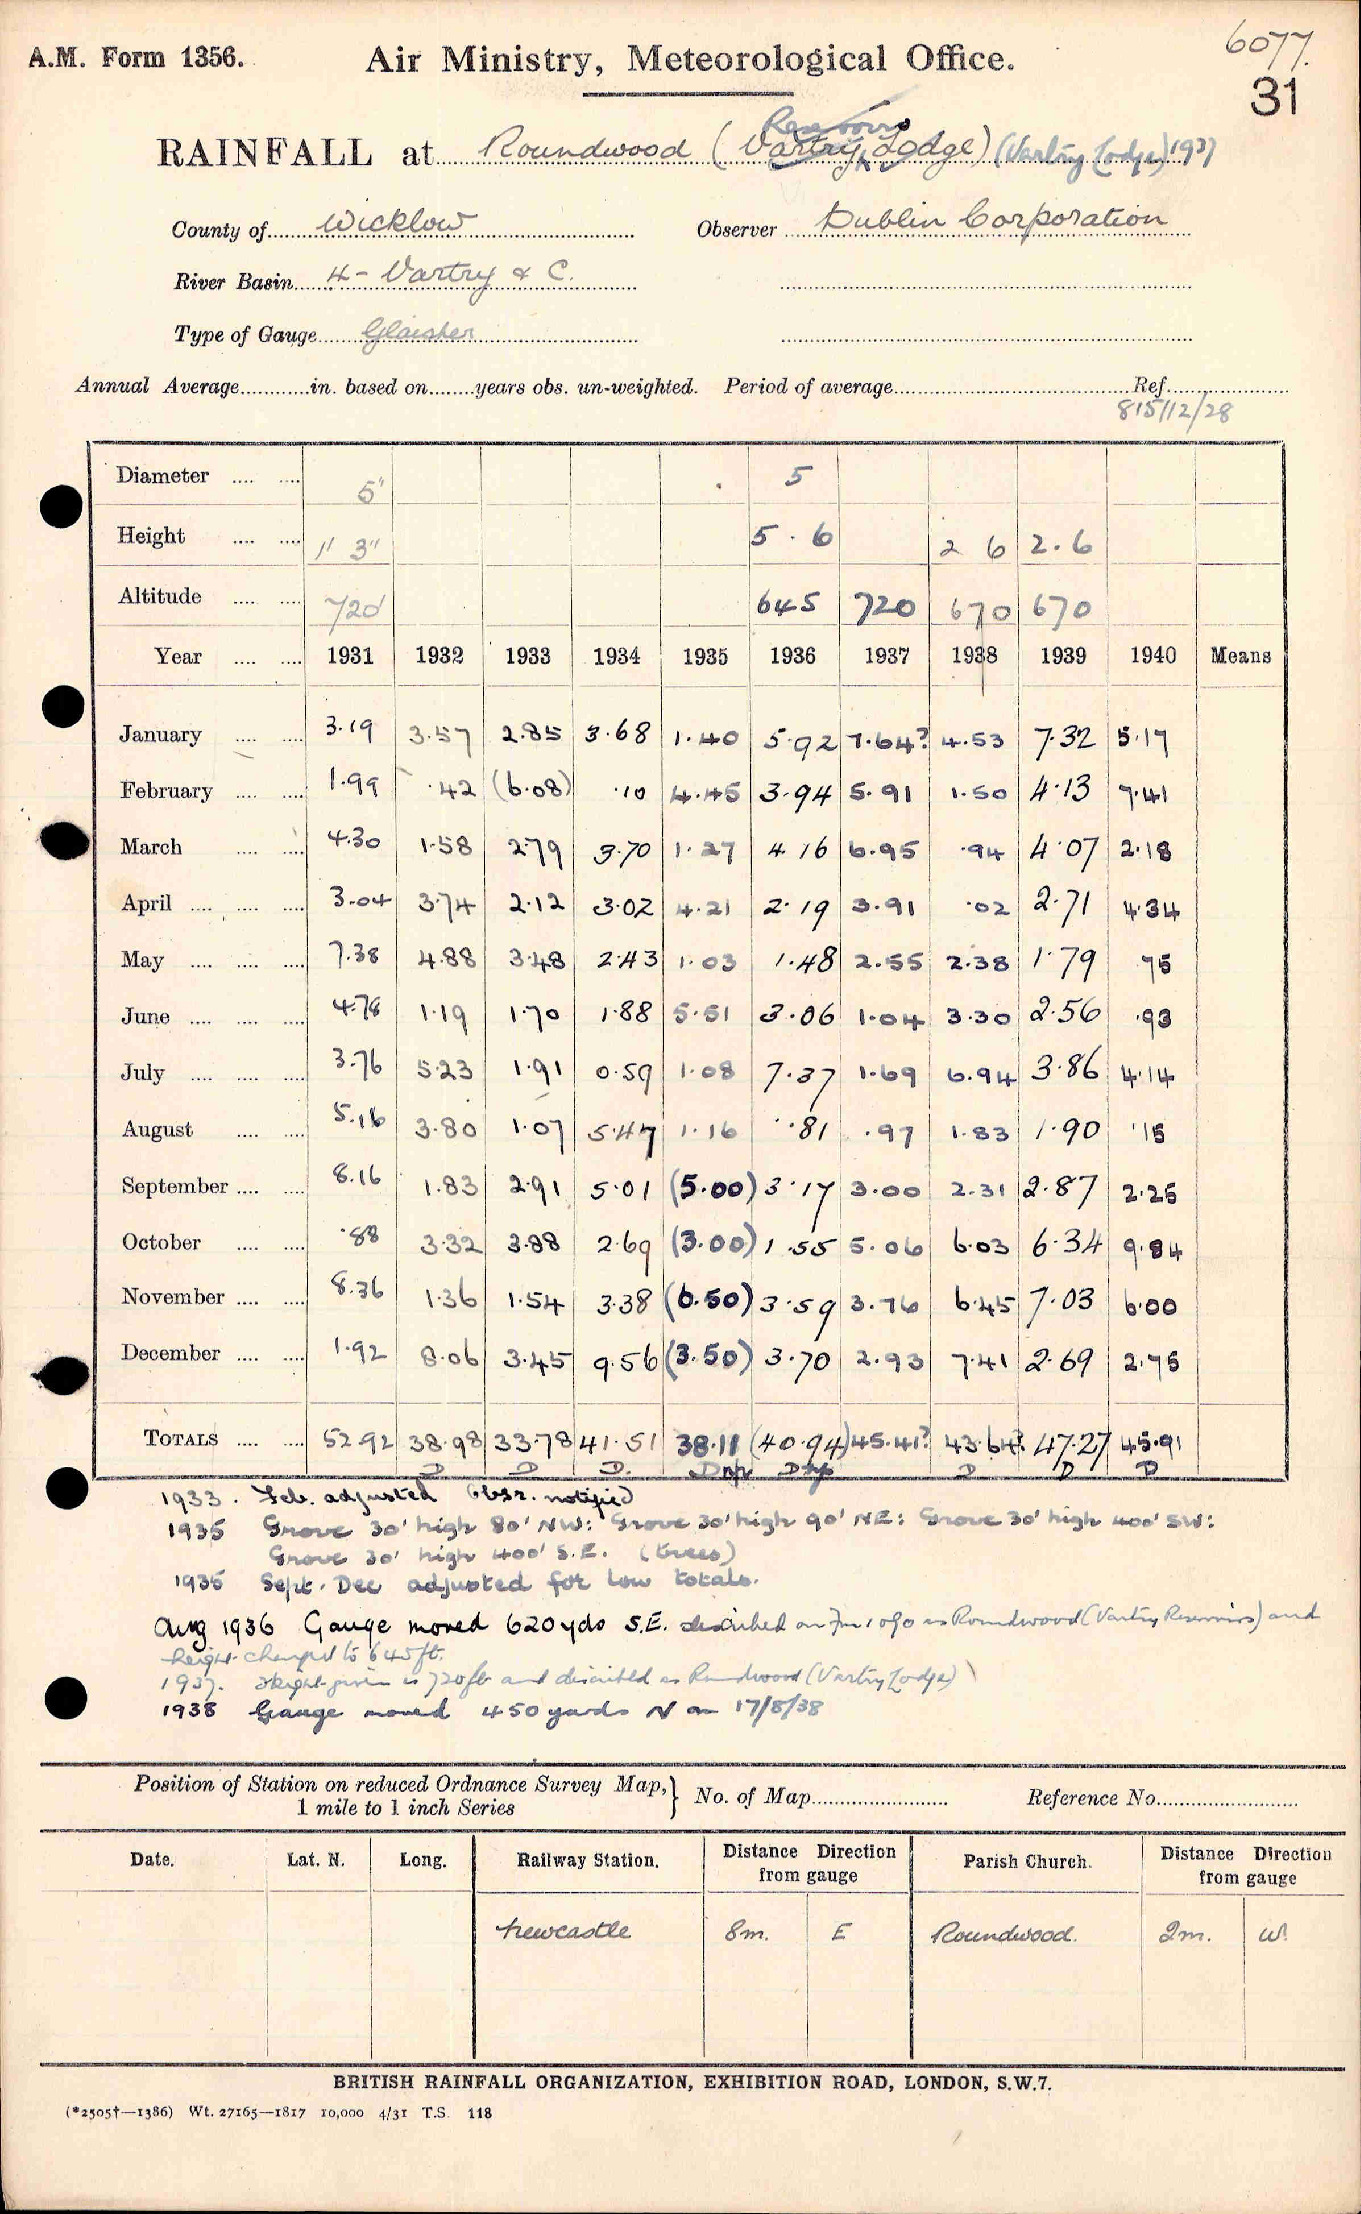 6077.
A.M. Form 1356. Air Ministry, Meteorological Office. 31
Reservoirs
RAINFALL at Roundwood (Vartry Lodge) (Vartry Lodge) 1937
County of Wicklow Observer Dublin Corporation
River Basin 4 - Vartry & C.
Type of Gauge Glaisher
Annual Average in. based on years obs. un-weighted. Period of average Ref
815/12/28
Diameter 5" 5
Height 1' 3" 5 . 6 2 6 2.6
Altitude 720' 645 720 670 670
Year 1931 1932 1933 1934 1935 1936 1937 1938 1939 1940 Means
January 3.19 3.57 2.85 3.68 1.40 5.92 7.64? 4.53 7.32 5.17
February 1.99 .42 (6.08) .10 4.45 3.94 5.91 1.50 4.13 7.41
March 4.30 1.58 2.79 3.70 1.27 4 16 6.95 .94 4.07 2.18
April 3.04 3.74 2.12 3.02 4.21 2.19 3.91 .02 2.71 4.34
May 7.38 4.88 3.48 2.43 1.03 1.48 2.55 2.38 1.79 75
June 4.78 1.19 1.70 1.88 5.51 3.06 1.04 3.30 2.56 .93
July 3.76 5.23 1.91 0.59 1.08 7.37 1.69 6.94 3.86 4.14
August 5.16 3.80 1.07 5.47 1.16 .81 .97 1.83 1.90 .15
September 8.16 1.83 2.91 5.01 (5.00) 3.17 3.00 2.31 2.87 2.25
October .88 3.32 3.88 2.69 (3.00) 1.55 5.06 6.03 6.34 9.84
November 8.36 1.36 1.54 3.38 (6.50) 3.59 3.76 6.45 7.03 6.00
December 1.92 8.06 3.45 9.56 (3.50) 3.70 2.93 7.41 2.69 2.75
TOTALS 52.92 38.98 33.78 41.51 38.11 (40.94) 45.41? 43.64? 47.27 45.91
D D D. D D D D D
1933. Feb. adjusted Obsr. notified
1935 Grove 30' high 80' NW: Grove 30' high 90' NE: Grove 30' high 400' SW:
Grove 30' high 400' S.E. (trees)
1935 Sept. Dec adjusted for low totals.
Aug 1936 Gauge moved 620 yds S.E. described on Fm 1090 as Roundwood (Vartry Reservoirs) and
height changed to 645 ft.
1937. Height given as 720 ft and described as Roundwood (Vartry Lodge)
1938 Gauge moved 450 yards N on 17/8/38
Position of Station on reduced Ordnance Survey Map, } No. of Map Reference No.
1 mile to 1 inch Series
Date. Lat. N. Long. Railway Station. Distance Direction from gauge Parish Church. Distance Direction from gauge
Newcastle 8m. E Roundwood. 2m. W.
BRITISH RAINFALL ORGANIZATION, EXHIBITION ROAD, LONDON, S.W.7.
(*2505†—1386) Wt. 27165—1817 10,000 4/31 T.S. 118